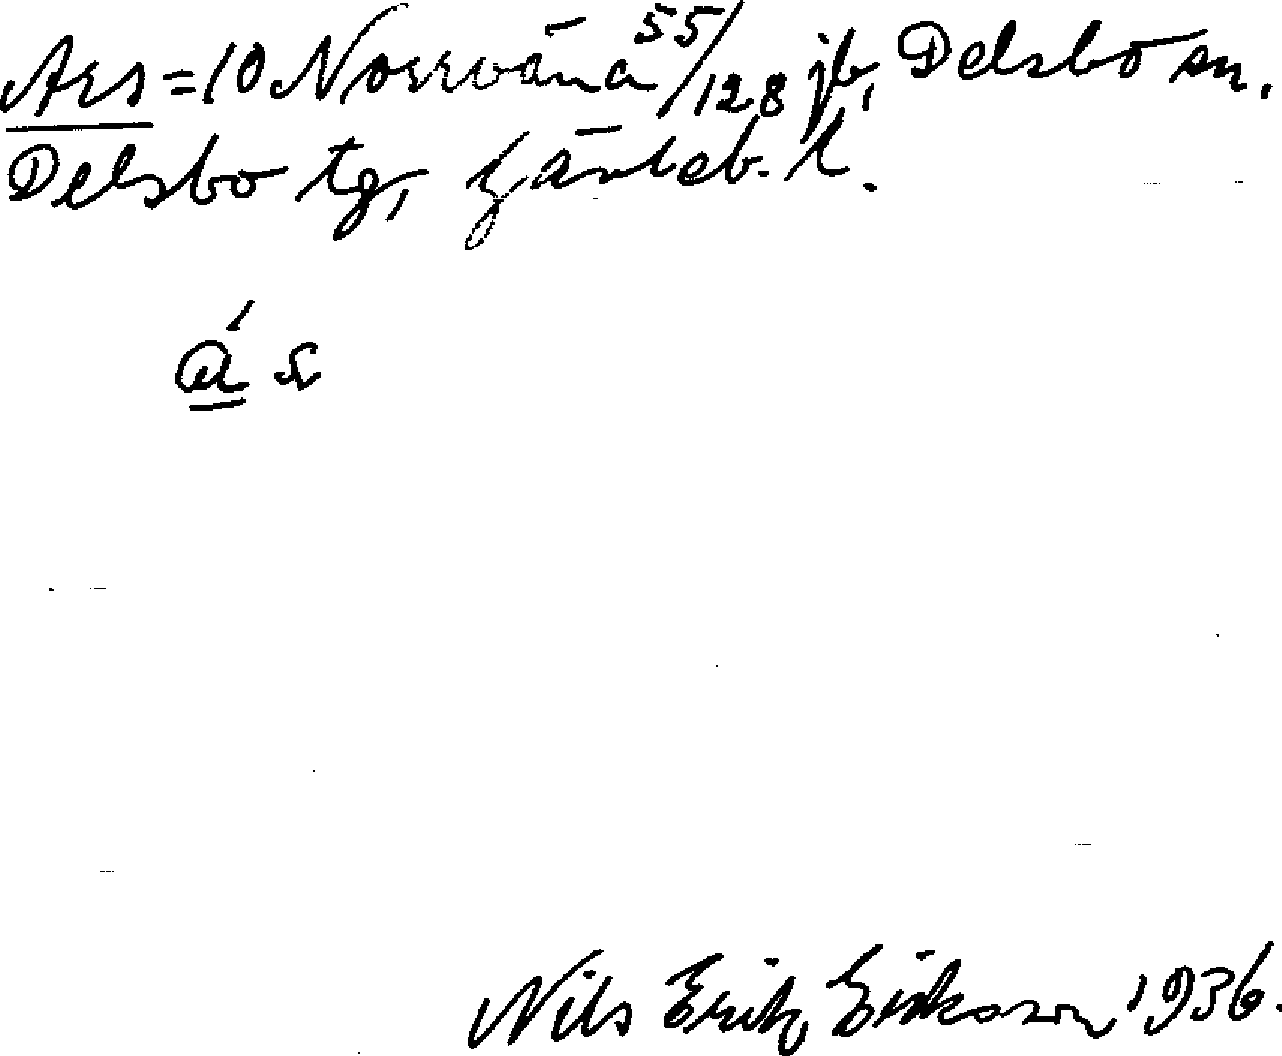 Ars = 10 Norrväna 55/128 jb, Delsbo sn.
Delsbo tg, Gävleb. l.
á s
Nils Erik Eriksson 1936.